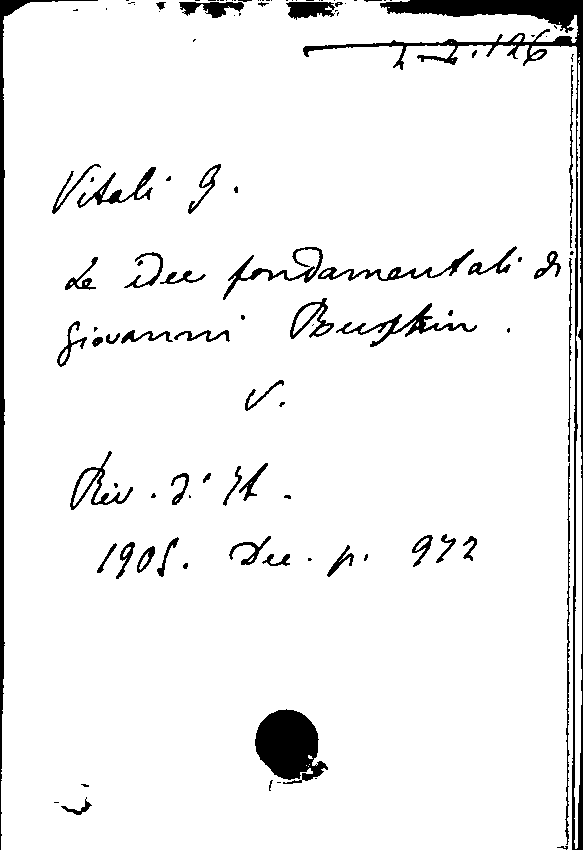 2-2.126
Vitali G.
Le idee fondamentali di
Giovanni Ruskin.
V.
Riv. d'It.
1905. Dec. p. 972